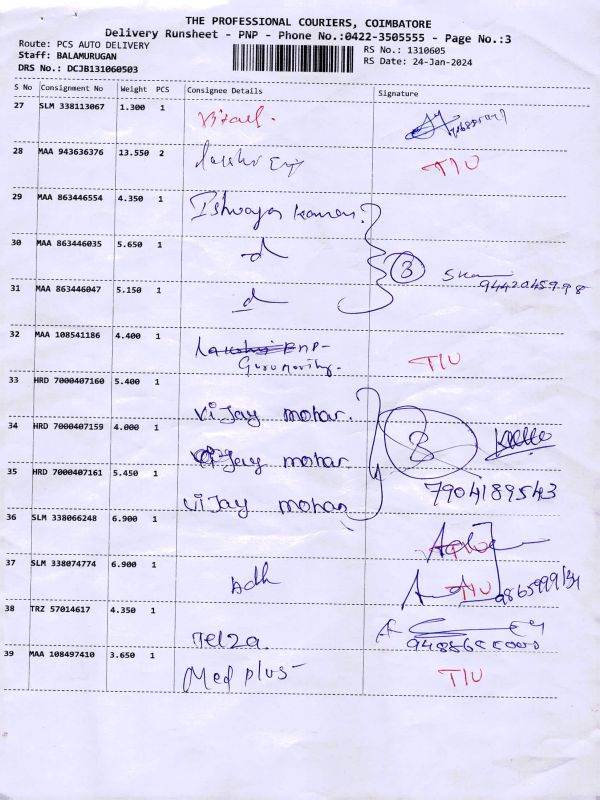 THE PROFESSIONAL COURIERS, COIMBATORE
Delivery Runsheet - PNP - Phone No.:0422-3505555 - Page No.:3
Route: PCS AUTO DELIVERY
RS No.: 1310605
Staff: BALAMURUGAN
RS Date: 24-Jan-2024
DRS No.: DCJB131060503
S No Consignment No Weight PCS Consignee Details Signature
27 SLM 338113067 1.300 1
28 MAA 943636376 13.550 2
T/U
29 MAA 863446554 4.350 1
30 MAA 863446035 5.650 1
d
3
31 MAA 863446047 5.150 1
d
32 MAA 108541186 4.400 1
PNP-
T/U
33 HRD 7000407160 5.400 1
vijay mohan.
34 HRD 7000407159 4.000 1
vijay mohan
3
35 HRD 7000407161 5.450 1
vijay mohan
7904189543
36 SLM 338066248 6.900 1
T/U
37 SLM 338074774 6.900 1
Adh
T/U
38 TRZ 57014617 4.350 1
39 MAA 108497410 3.650 1
Med plus-
T/U